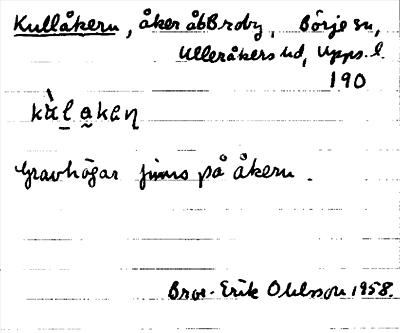 Kullåkern, åker åbBroby, Börje sn,
Ulleråkers hd, Upps. l.
190
kùl̠ a̰kaɳ
Gravhögar finns på åkern.
Bror-Erik Ohlsson 1958.